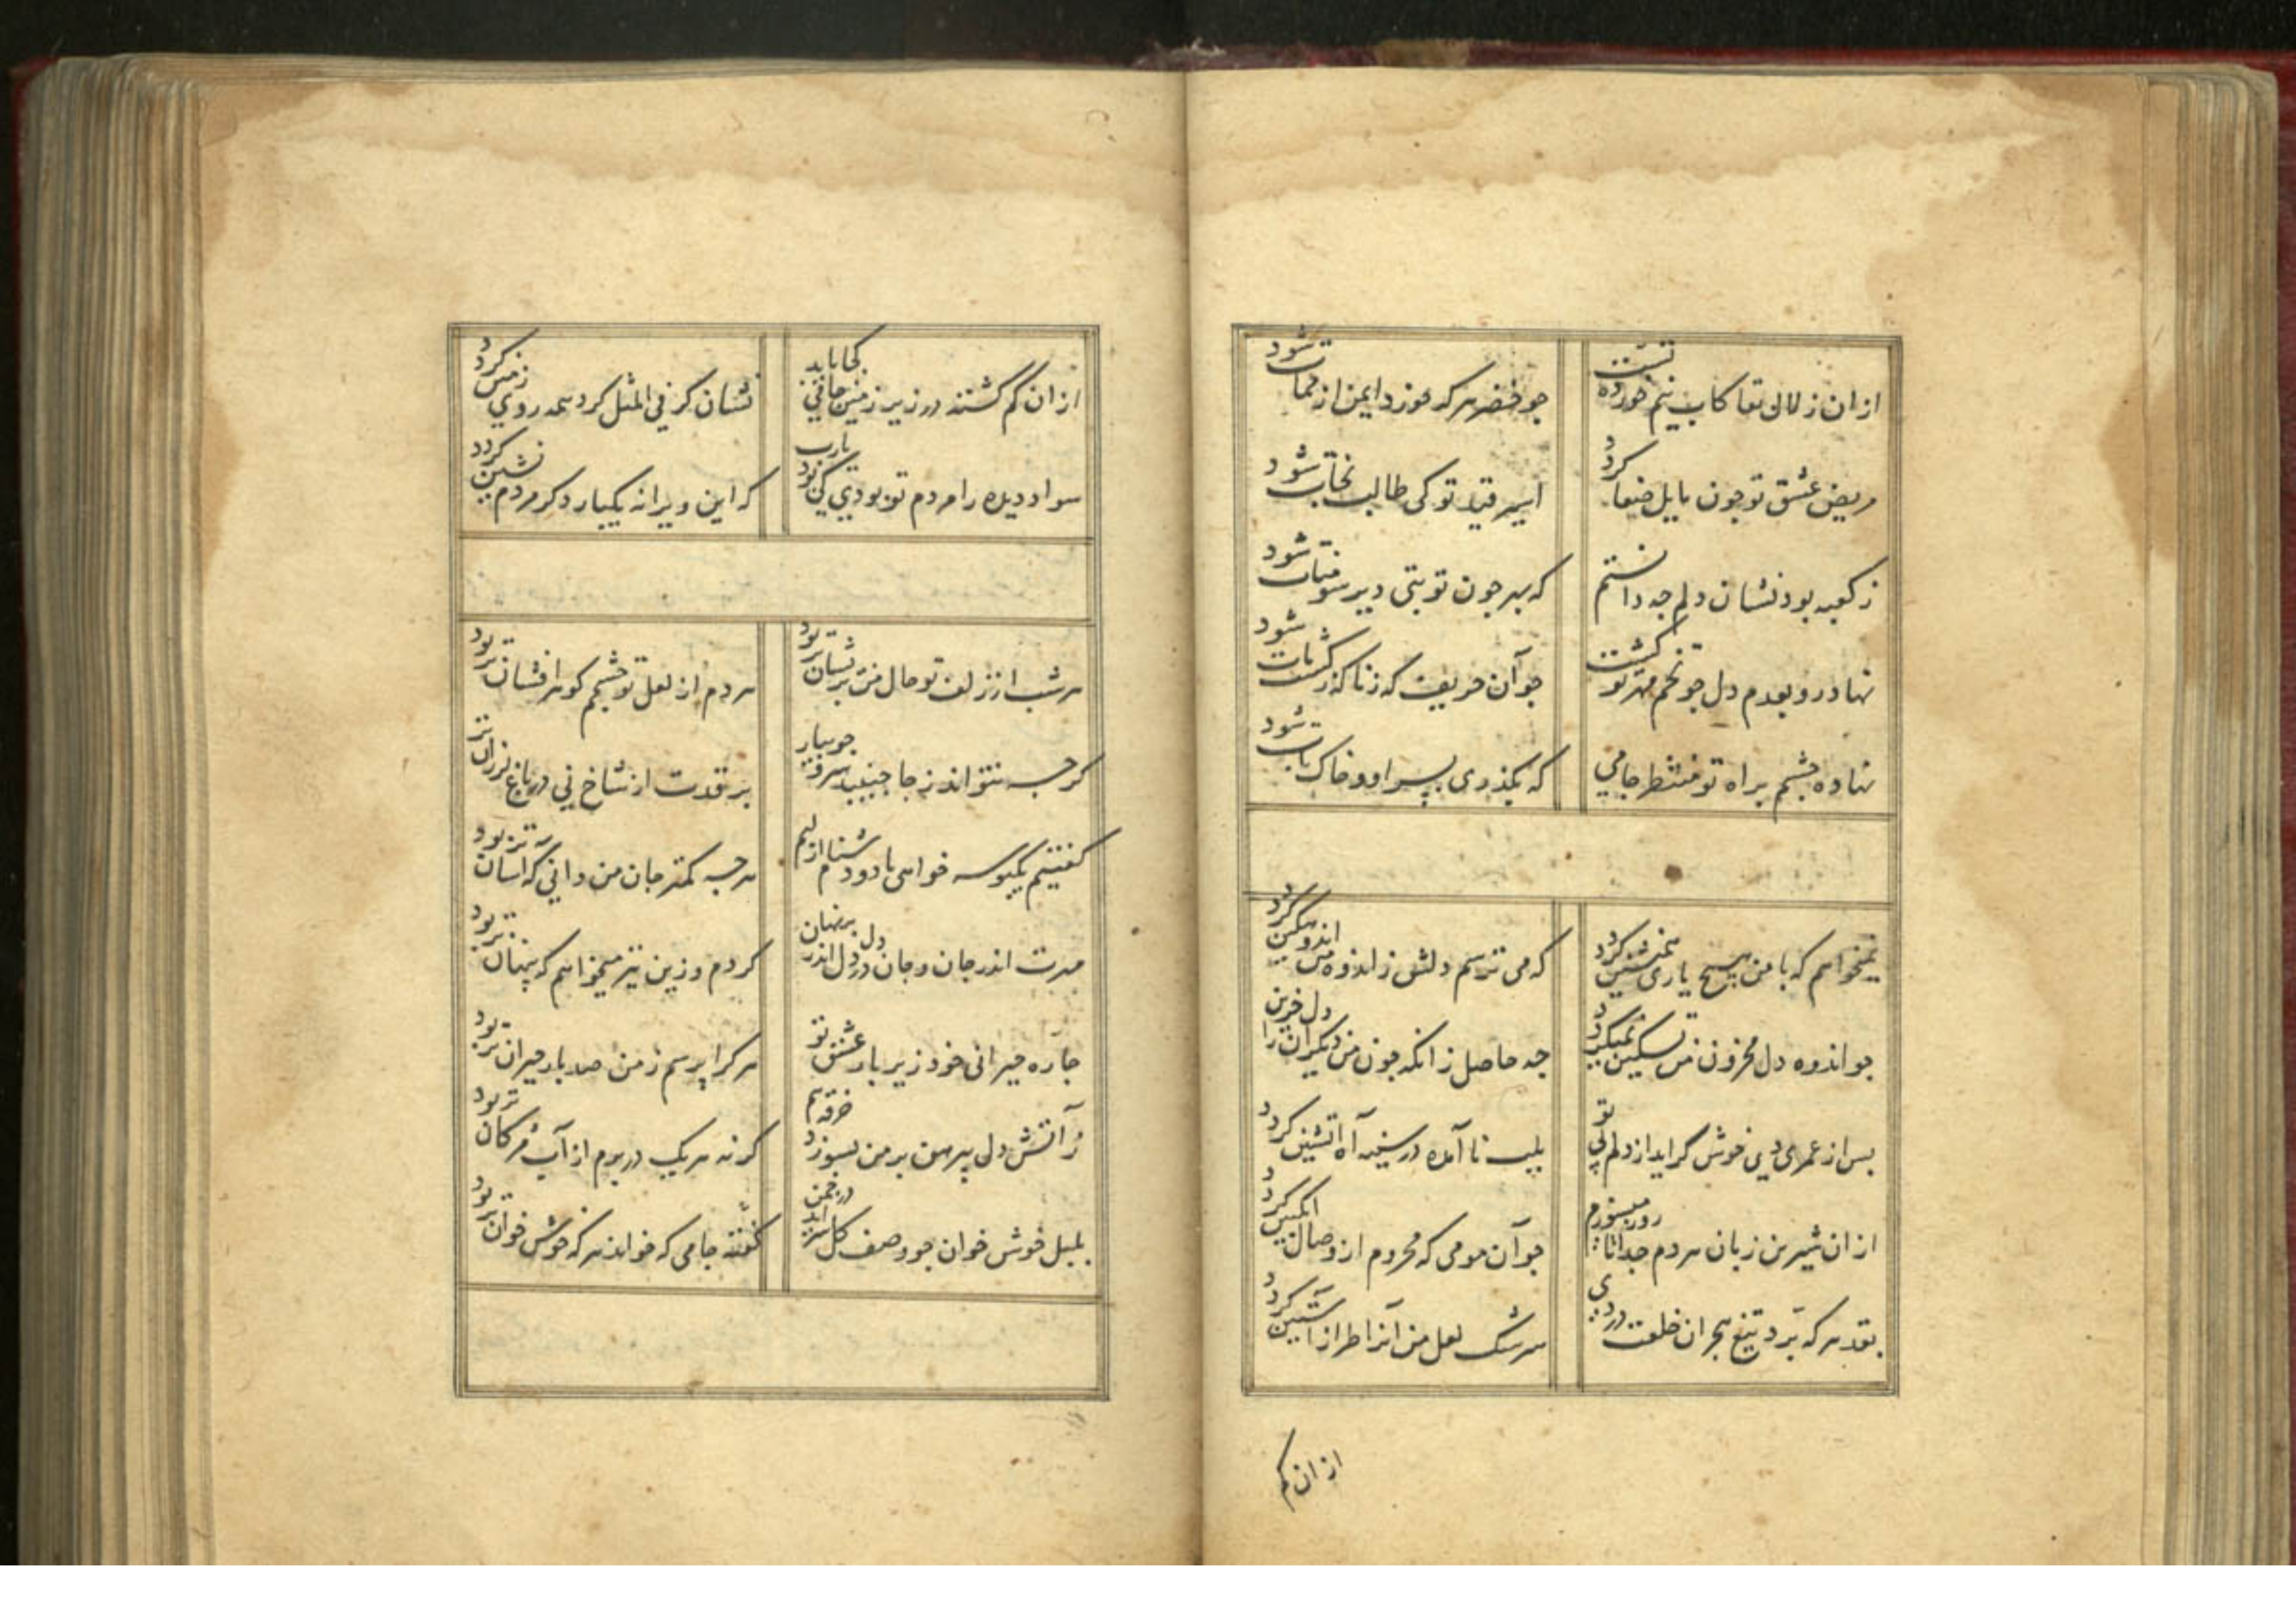 ازان زلال بقا کاب نیم خورده تست
جو خضر هر که خورد ایمن از ممات شود
مریض عشق تو جون مایل شفا کردد
اسیر قید تو کی طالب نجات شود
ز کعبه بود نشان دلم جه دانستم
که بهر جون تو بتی دیر سومنات شود
نهاد رو بعدم دل جو تخم مهر تو کشت
جو آن حریف که ناکه ز کشت مات شود
نهاده جشم براه تو منتظر جامی
که بکذری بسر او و خاک بات شود
نمیخواهم که با من هیچ یاری همنشین کردد
که می ترسم دلش ز اندوه من اندوهکین کردد
جو اندوه دل محزون من تسکین نمیکیرد
جه حاصل زانکه جون من دیکران را دل حزین
بس از عمری دمی خوش کر اید از دلم بی تو
بلب نا آمده در سینه آه آتشین کردد
ازان شیرین زبان هر دم جدا تا روز میسوزم
جو آن مومی که محروم از وصال انکبین کردد
بقد هر که برد تیغ هجران خلعت دردی
سرشک لعل من آنرا طراز آستین کردد
ازان کم
ازان کم کشته در زیر زمین جامی کجا یابد
نشان کر فی المثل کرد همه روی زمین کردد
سواد دیده را مردم تو بودی کی بود یارب
که این ویرانه یکبار دکر مردم نشین کردد
هر شب از زلف تو حال من بریشان تر بود
هر دم از لعل تو جشمم کوهر افشان تر بود
کرجه نتواند ز جا جنبید سرو جویبار
بر قدت از شاخ نی در باغ لرزان تر
کفتیم یکبوسه خواهی یا دو دشنام از لبم
هرجه کمتر جان من دانی که آسان تر بود
مهرت اندر جان و جان در دل دل اندر بر نهان
کردم و زین نیز میخواهم که پنهان تر بود
جاره حیرانی خود زیر بار عشق تو
هر کرا پرسم ز من صد بار حیران تر بود
ز آتش دل پیرهن بر من بسوزد خرقه هم
کرنه هر یک در برم از آب مژکان تر بود
بلبل خوش خوان جو وصف کل سراید در جمن
کفته جامی که خواند هر که خوش خوان تر بود